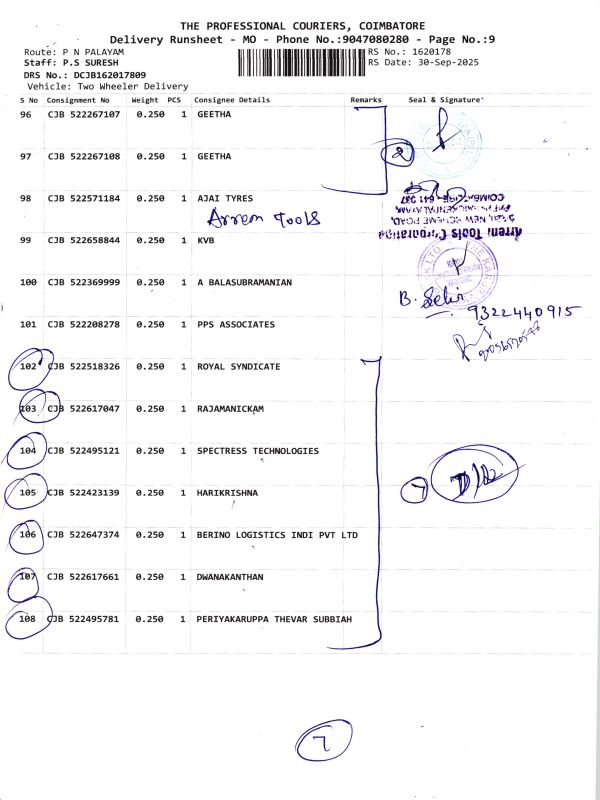 THE PROFESSIONAL COURIERS, COIMBATORE
Delivery Runsheet - MO - Phone No.:9047080280 - Page No.:9
Route: P N PALAYAM
RS No.: 1620178
Staff: P.S SURESH
RS Date: 30-Sep-2025
DRS No.: DCJB162017809
Vehicle: Two Wheeler Delivery
S No Consignment No Weight PCS Consignee Details Remarks Seal & Signature
96 CJB 522267107 0.250 1 GEETHA
2
97 CJB 522267108 0.250 1 GEETHA
98 CJB 522571184 0.250 1 AJAI TYRES
Arrem Tools
Arrem Tools Corporation
NEW SCHEME ROAD,
COIMBATORE - 641 037
99 CJB 522658844 0.250 1 KVB
100 CJB 522369999 0.250 1 A BALASUBRAMANIAN
B.
9322440915
101 CJB 522208278 0.250 1 PPS ASSOCIATES
102 CJB 522518326 0.250 1 ROYAL SYNDICATE
103 CJB 522617047 0.250 1 RAJAMANICKAM
104 CJB 522495121 0.250 1 SPECTRESS TECHNOLOGIES
105 CJB 522423139 0.250 1 HARIKRISHNA
7
106 CJB 522647374 0.250 1 BERINO LOGISTICS INDI PVT LTD
107 CJB 522617661 0.250 1 DWANAKANTHAN
108 CJB 522495781 0.250 1 PERIYAKARUPPA THEVAR SUBBIAH
7